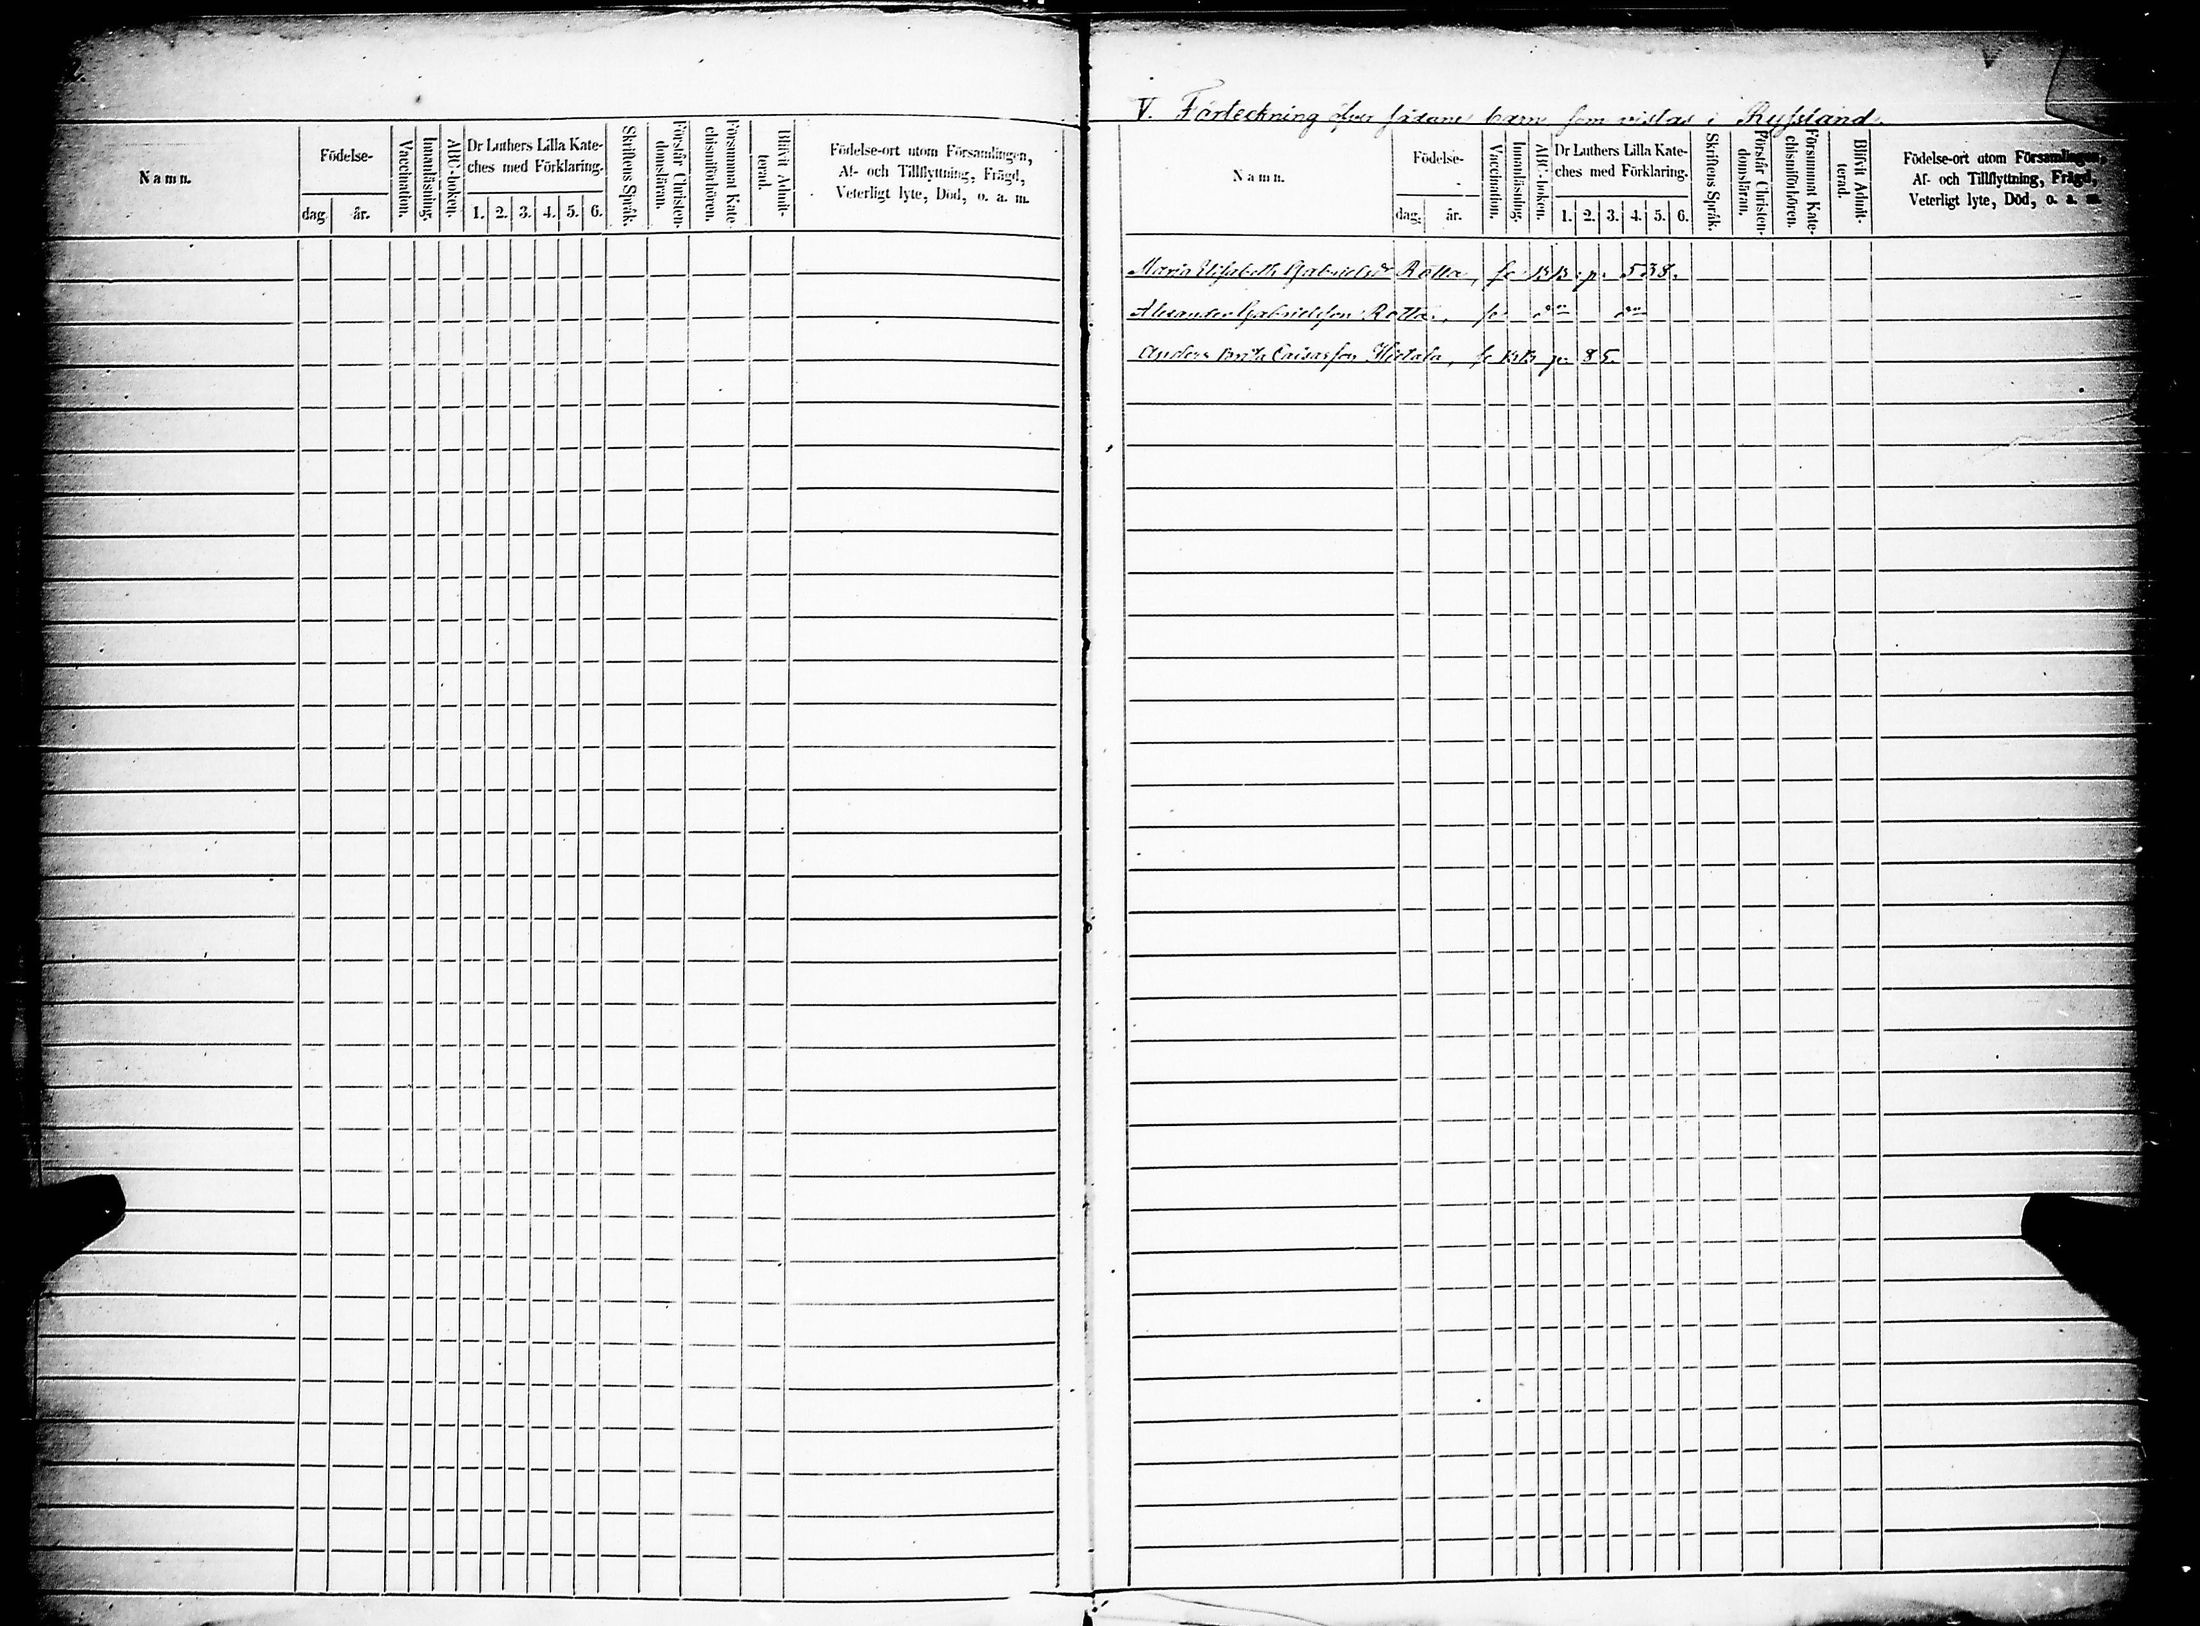 Namn.
Födelse-
dag.
år.
Vaccination.
Innanläsning.
ABC-boken.
Dr Luthers Lilla Kate-
ches med Förklaring.
1. 2. 3. 4. 5. 6.
Skriftens Språk.
Förstår Christen-
domsläran.
Försummat Kate-
chismiförhören.
Blifvit Admit-
terad.
Födelse-ort utom Församlingen,
Af- och Tillflyttning, Frägd,
Veterligt lyte, Död, o. a. m.
V. Förteckning öfver sådane barn som vistas i Ryssland.
Namn.
Födelse-
dag.
år.
Vaccination.
Innanläsning.
ABC-boken.
Dr Luthers Lilla Kate-
ches med Förklaring.
1. 2. 3. 4. 5. 6.
Skriftens Språk.
Förstår Christen-
domsläran.
Försummat Kate-
chismiförhören.
Blifvit Admit-
terad.
Födelse-ort utom Församlingen,
Af- och Tillflyttning, Frägd,
Veterligt lyte, Död, o. a. m.
Maria Elisabeth Gabrielsdr Rotta, se BB. p. 538.
Alexander Gabrielsson Rotta, se do do
Anders Brita Caisasson Hietala, se BB p. 85.